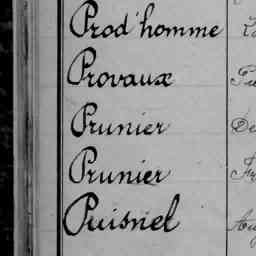 Prod'homme
Provaux
Prunier
Prunier
Puisniel